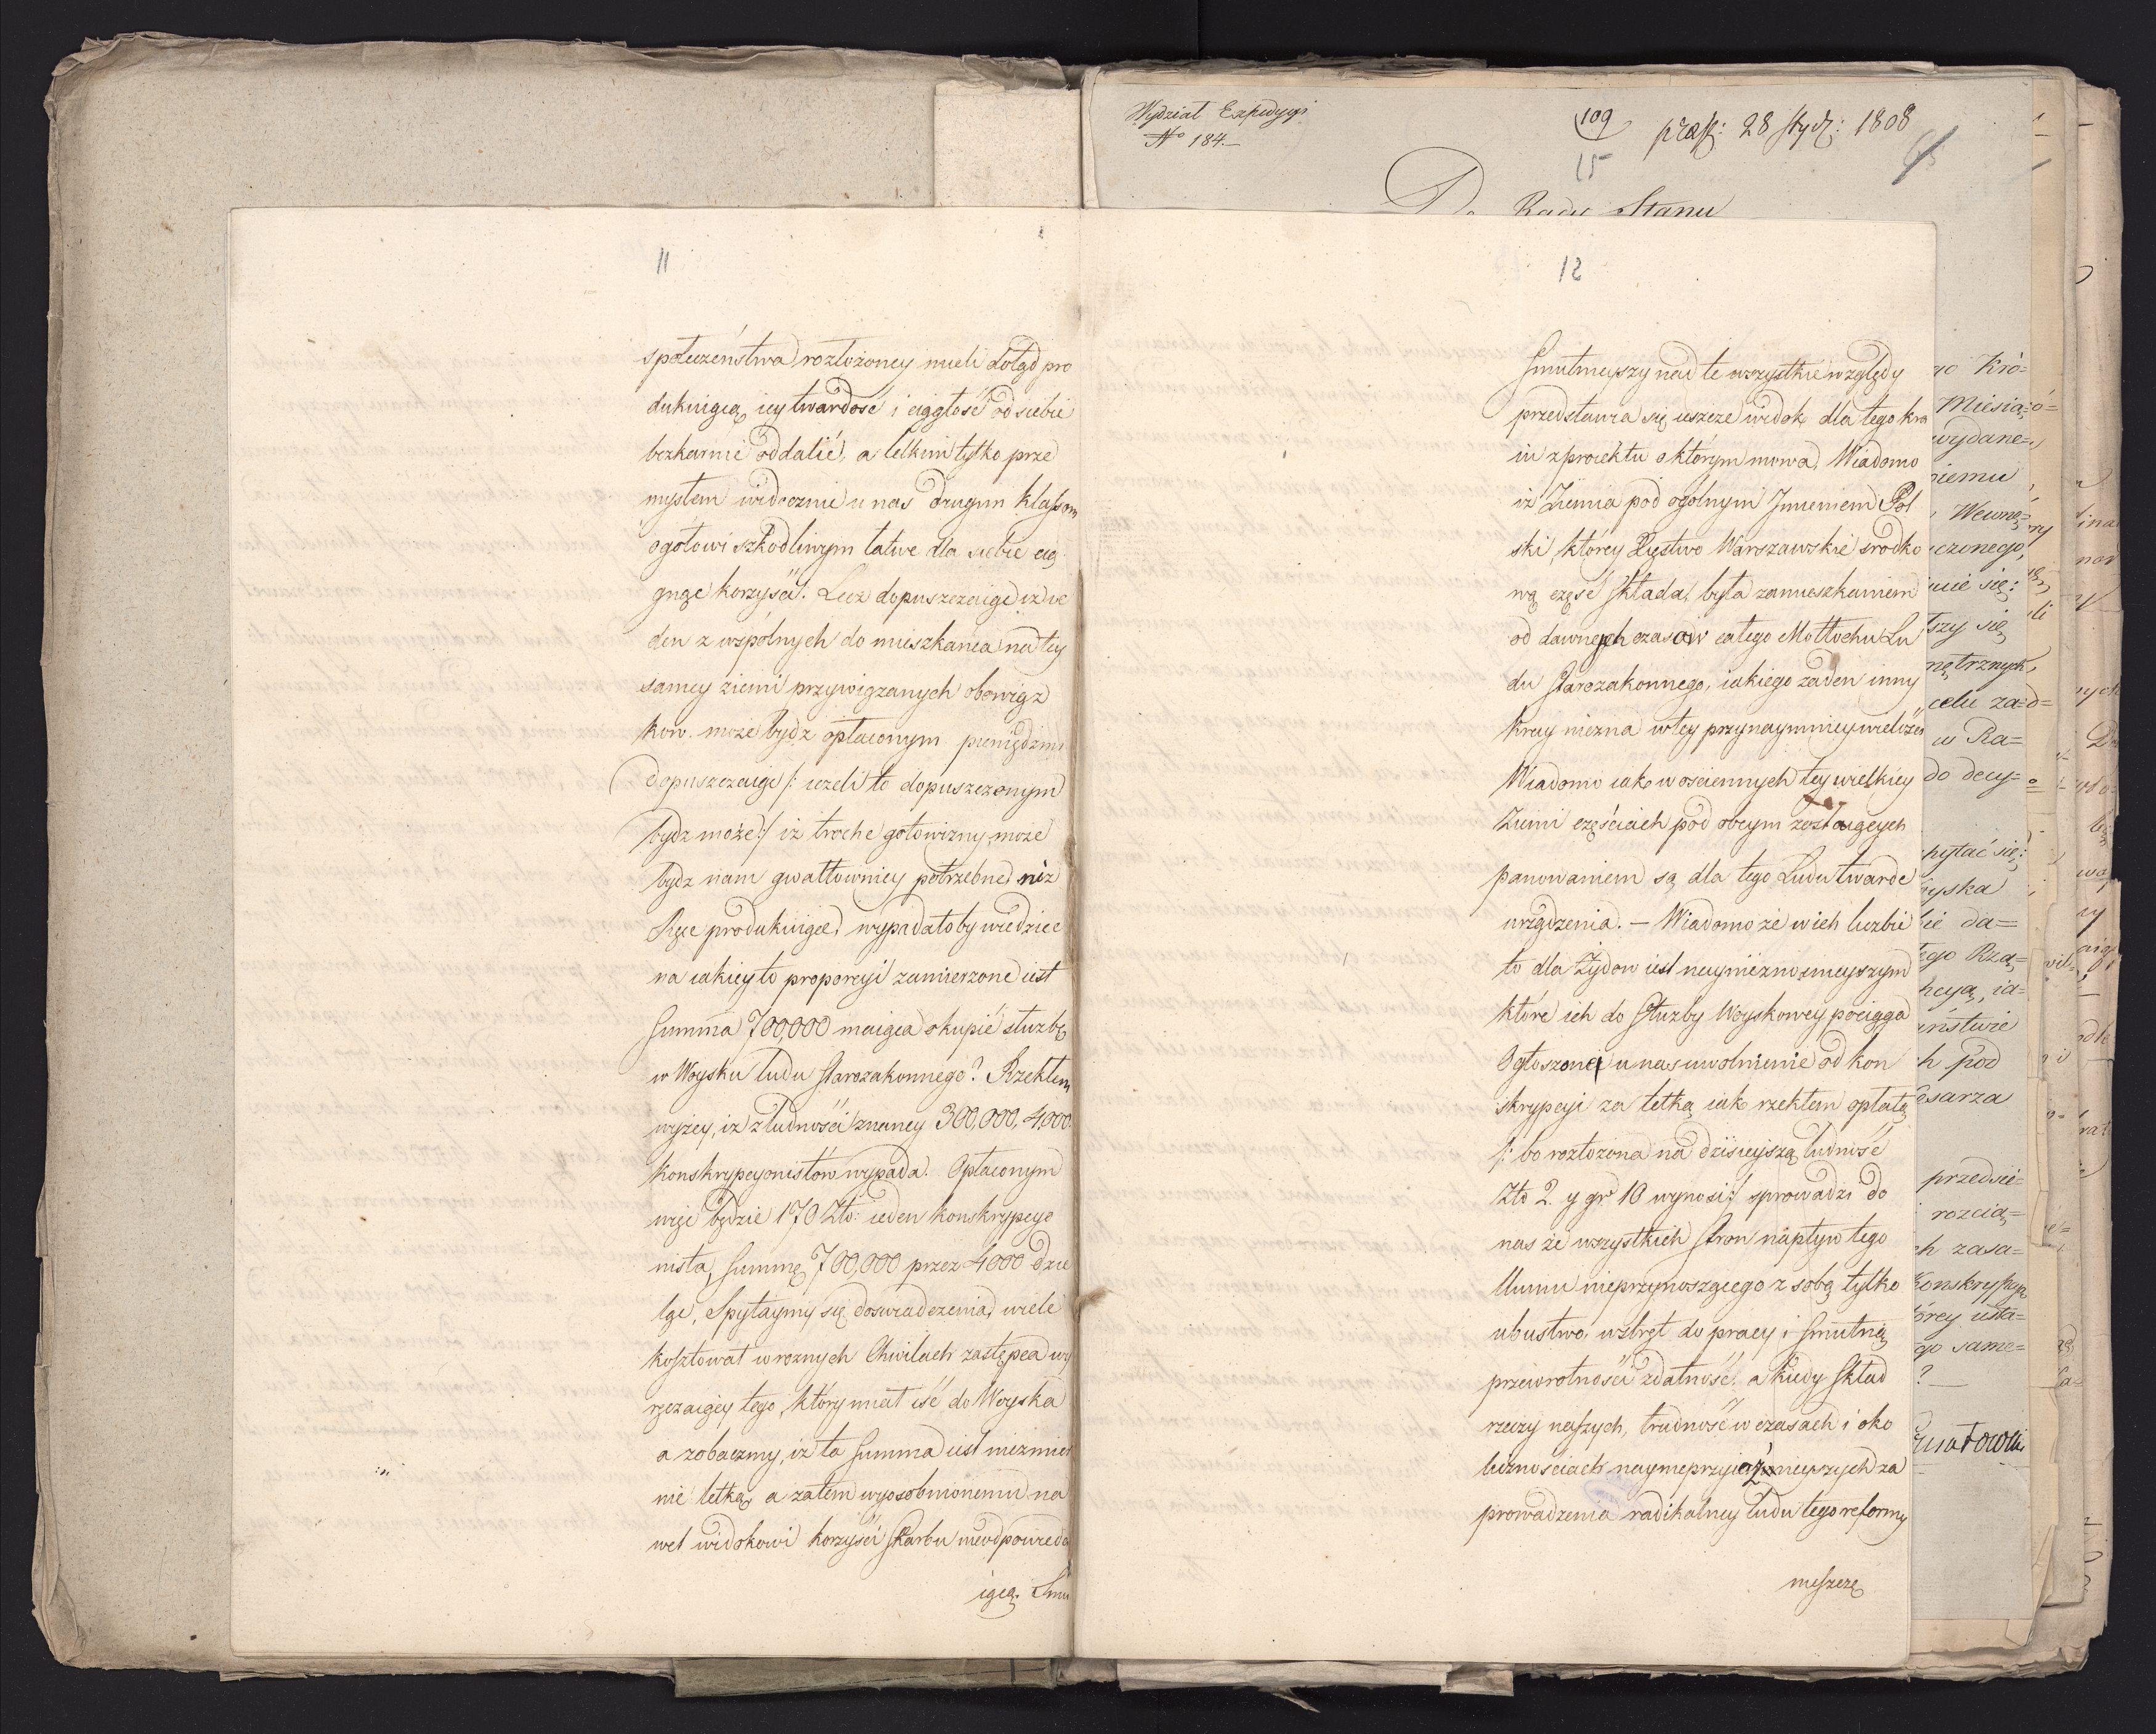 11
społeczeństwa rozłożoney mieli dotąd pro
dukuiącą iey twardość i ciągłość od siebie
bezkarnie oddalić, a lelkim tylko prze
mysłem widocznie u nas drugim klassom
ogołowi szkodliwym łatwe dla siebie cią
gnąc korzyści. Lecz dopuszczaiąc iż ie
den z wspólnych do mieszkania na tey
samey ziemi przywiązanych obowiąz
kow. może bydz opłaconym pieniędzmi
dopuszczaiąc /: ieżeli to dopuszczonym
bydz może :/ iż troche gotowizny, może
bydz nam gwałtowniey potrzebne niż
Ręce produkuiące, wypadałoby wiedziec
na iakiey to proporcyi zamierzone iest
Summa 700,000 maiąca okupić służbę
w Woysku ludu Starozakonnego? Rzekłem
wyżey, iż z ludności znaney 300,000, 4,000.
konskrypcyonistów wypada. Opłaconym
więc będzie 170 Złło: ieden konskrypcyo
nista, Summę 700,000 przez 4000 dzie
ląc, Spytaymy się doswiadczenia, wiele
kosztował w roznych Chwilach zastępca wy
ręczaiący tego, który miał iść do Woyska
a zobaczmy, iż ta Summa iest niezmier
nie letką, a zatem wyosobnionemu na
wet widokowi korzyści Skarbu nieodpowieda
iącą. Smu
Wydział Expedycyi
No 184.
109
15
præs: 28 stycz: 1808
Do Rady Stanu
12
Smutnieyszy nad te wszystkie względy
przedstawia się ieszcze widok dla tego kra
iu z proiektu o którym mowa. Wiadomo
iż Ziemia pod ogolnym Imieniem Pol
ski, którey Xięstwo Warszawskie srodko
wą część składa, była zamieszkaniem
od dawnych czasów całego Mottochu Lu
du Starozakonnego, iakiego żaden inny
kray niezna w tey przynaymniey wielości
Wiadomo iak w ościennych tey wielkiey
Ziemi częściach pod obcym zostaiących
panowaniem są dla tego Ludu twarde
urządzenia. — Wiadomo że w ich liczbie
to dla Żydow iest nayniéznosnieyszym
które ich do Służby Woyskowey pociąga
Ogłoszone u nas uwolnienie od kon
skrypcyi za letką iak rzekłem opłatą
/: bo rozłożona na dzisieyszą ludność
Złł 2. y gr 10 wynosi :/ sprowadzi do
nas ze wszystkich Stron napływ tego
tłumu nieprzynoszącego z sobą tylko
ubustwo, wstręt do pracy i Smutną
przewrotności zdatność. a kiedy Skład
rzeczy naszych, trudność w czasach i oko
licznościach nay
prowadzenia radikalney ludu tego reformy
nieszczę
Kró=
Miesią=
wydane=
Wewnę=
czonego,
się:
tszy się
nętrznych,
celu za=
w Ra=
do decy=
pytać się:
da=
tego Rzą=
ią=
h pod
przedsie=
rozcią=
h zasa=
Konskrypcy
usta=
go same=
?